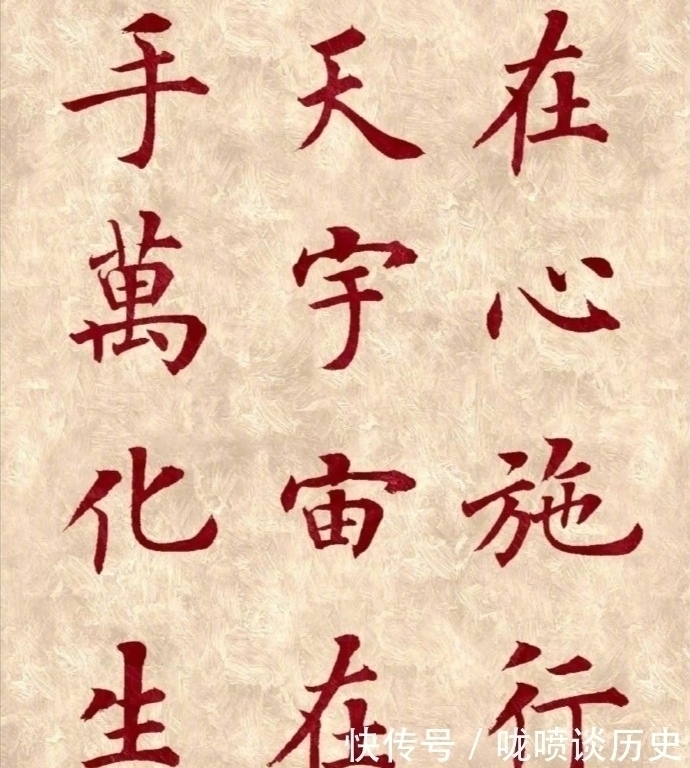 在心施行
天宇宙在
手萬化生
快传号 / 咙喷谈历史